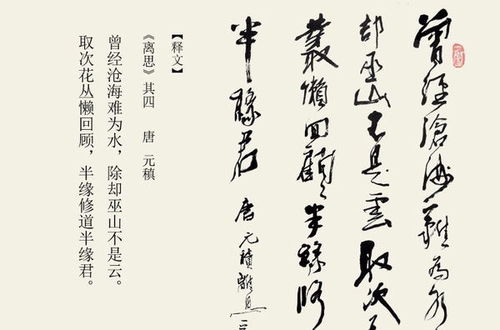 曾經滄海難為水
却巫山不是雲取次
叢懶回顧半緣修
半緣君
唐元稹離思
【释文】
《离思》其四 唐 元稹
曾经沧海难为水，除却巫山不是云。
取次花丛懒回顾，半缘修道半缘君。